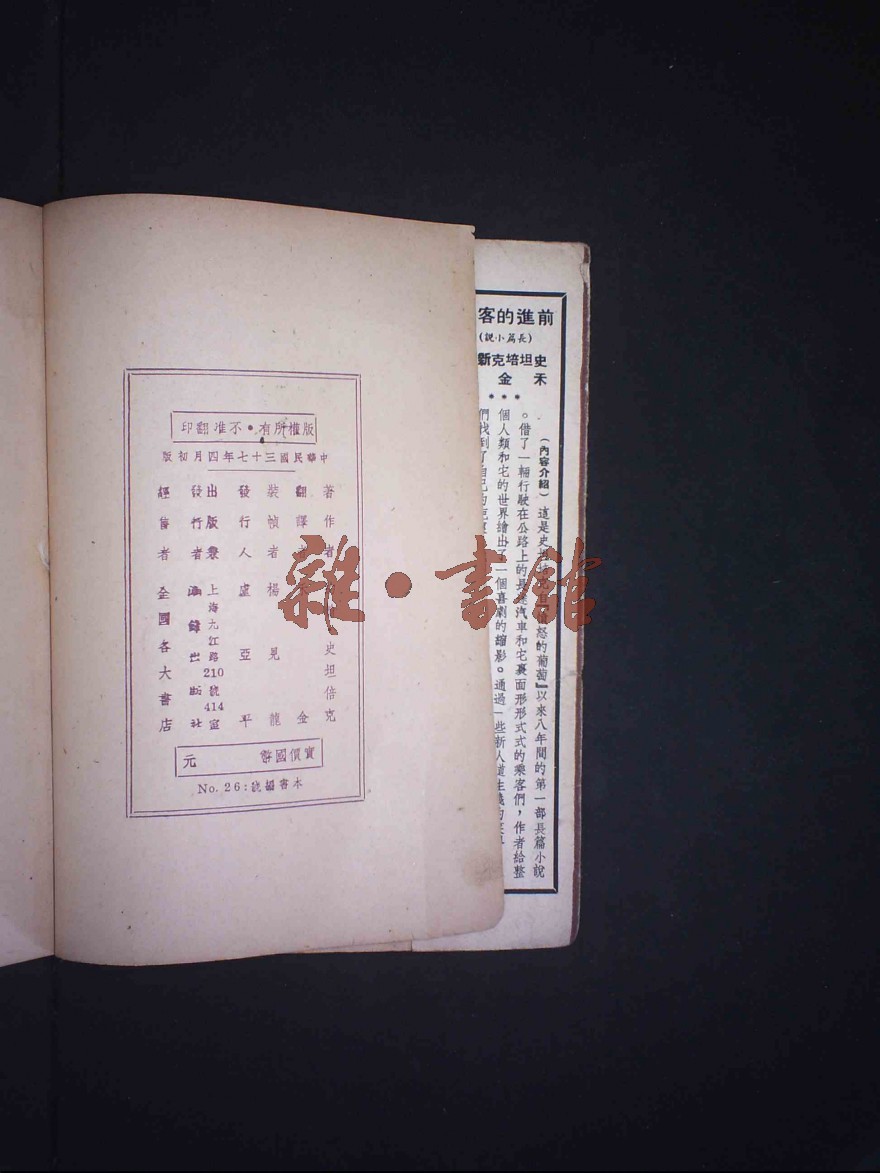 版權所有•不准翻印
中華民國三十七年四月初版
著作者 史坦倍克
翻譯者 禾金
裝幀者 楊見龍
發行人 盧亞平
出版兼發行者
上海九江路210號414室
出版社
經售者 全國各大書店
實價國幣 元
本書編號:No.26
雜•書館
前進的客
(長篇小說)
史坦培克新
禾金
***
(內容介紹)這是史坦培克
怒的葡萄』以來八年間的第一部長篇小說
。借了一輛行駛在公路上的長途汽車和它裏面形形式式的乘客們,作者給整
個人類和它的世界繪出了一個喜劇的縮影。通過一些新人道主義的
們找到了自己的